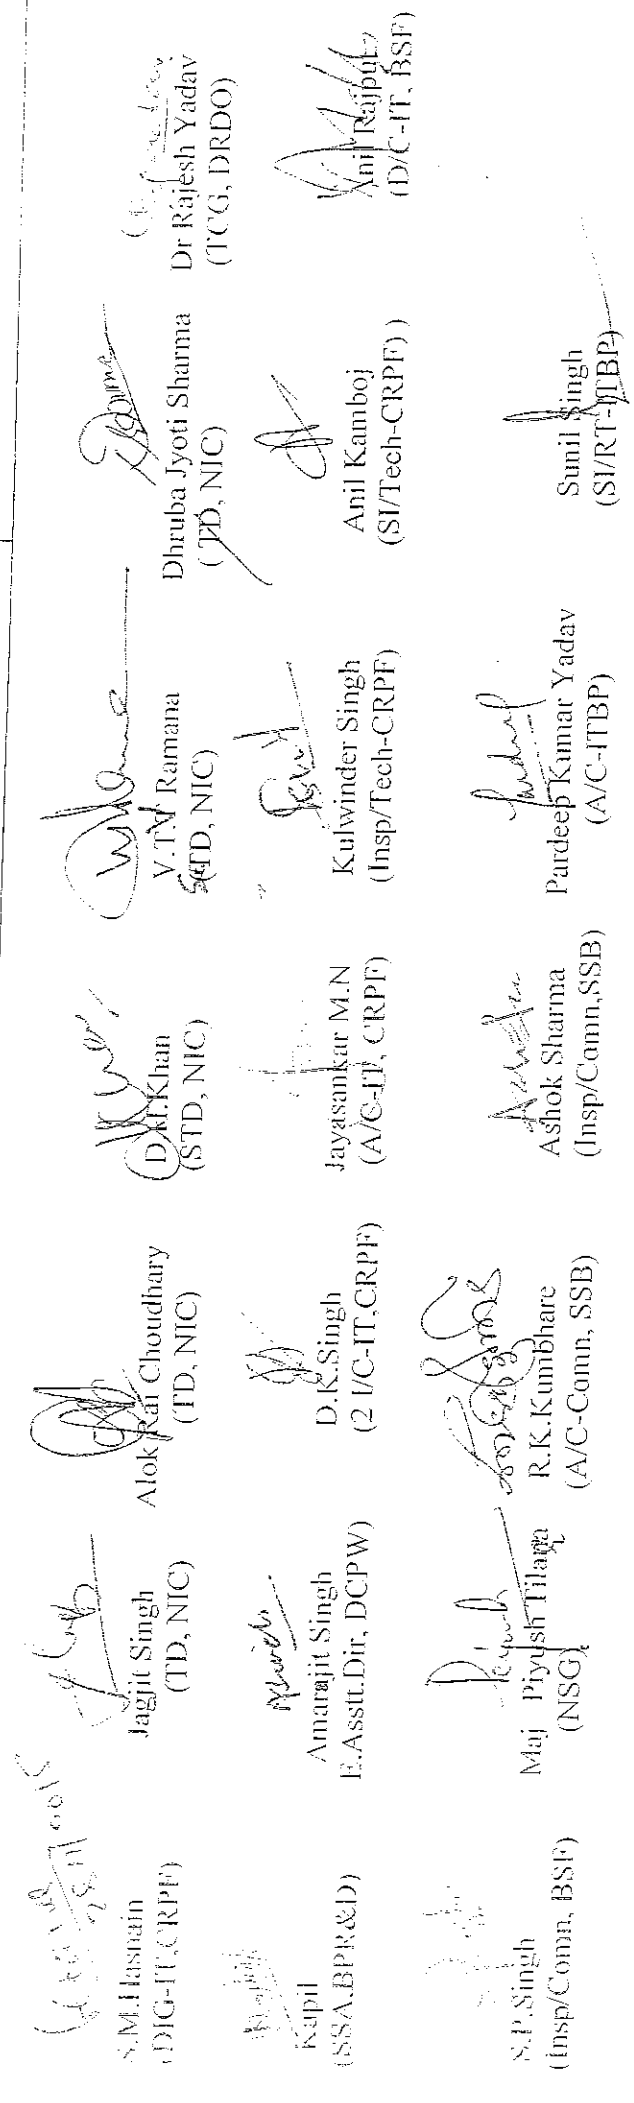 S.M.Hasnain
(DIG-IT,CRPF)
Jagjit Singh
(TD, NIC)
Alok Rai Choudhary
(TD, NIC)
D.H.Khan
(STD, NIC)
V.T.V Ramana
(STD, NIC)
Dhruba Jyoti Sharma
( TD, NIC)
Dr Rajesh Yadav
(TCG, DRDO)
Kapil
(SSA,BPR&D)
Amarajit Singh
E.Asstt.Dir, DCPW)
D.K.Singh
(2 I/C-IT,CRPF)
Jayasankar M.N
(A/C-IT, CRPF)
Kulwinder Singh
(Insp/Tech-CRPF)
Anil Kamboj
(SI/Tech-CRPF) )
Anil Rajput
(D/C-IT, BSF)
S.P.Singh
(Insp/Comn, BSF)
Maj Piyush Tilara
(NSG)
R.K.Kumbhare
(A/C-Comn, SSB)
Ashok Sharma
(Insp/Comn,SSB)
Pardeep Kumar Yadav
(A/C-ITBP)
Sunil Singh
(SI/RT-ITBP)